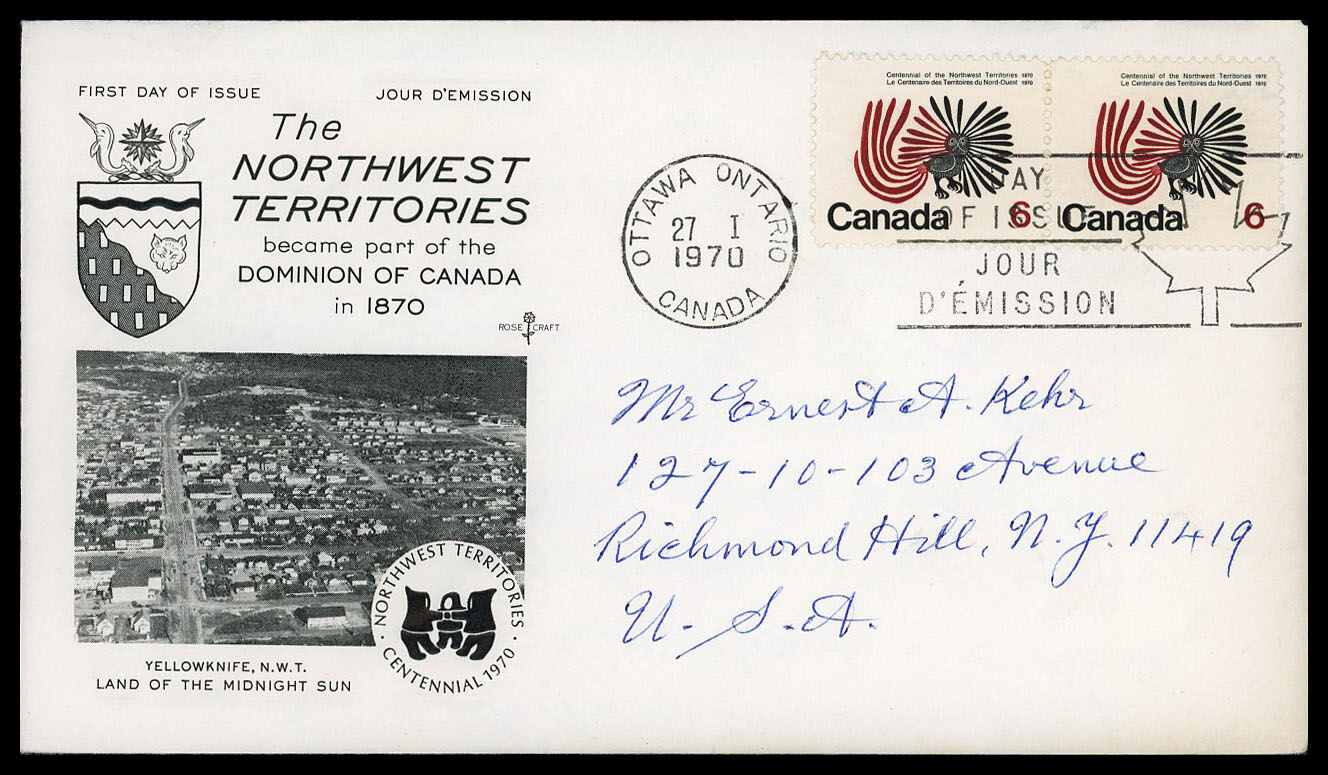 FIRST DAY OF ISSUE JOUR D'EMISSION
The
NORTHWEST
TERRITORIES
became part of the
DOMINION OF CANADA
in 1870
ROSE CRAFT
NORTHWEST TERRITORIES
CENTENNIAL 1970
YELLOWKNIFE, N.W.T.
LAND OF THE MIDNIGHT SUN
OTTAWA ONTARIO
27 I
1970
CANADA
Centennial of the Northwest Territories 1970
Le Centenaire des Territoires du Nord-Ouest 1970
Canada 6
Centennial of the Northwest Territories 1970
Le Centenaire des Territoires du Nord-Ouest 1970
Canada 6
DAY
OF ISSUE
JOUR
D'ÉMISSION
Mr Ernest A. Kehr
127-10-103 Avenue
Richmond Hill, N.Y. 11419
U.S.A.